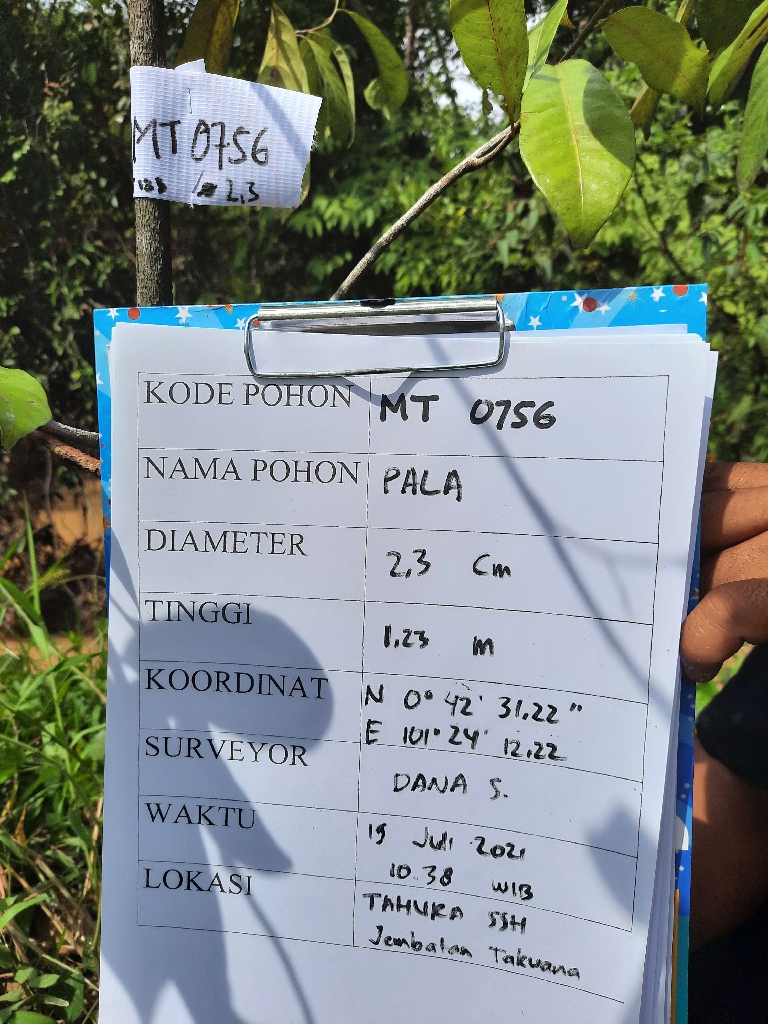 MT 0756
2,3
KODE POHON MT 0756
NAMA POHON PALA
DIAMETER 2,3 Cm
TINGGI 1,23 m
KOORDINAT N 0° 42' 31,22"
E 101° 24' 12,22
SURVEYOR DANA S.
WAKTU 15 Juli 2021
10.38 WIB
LOKASI TAHURA SSH
Jembatan Takuana